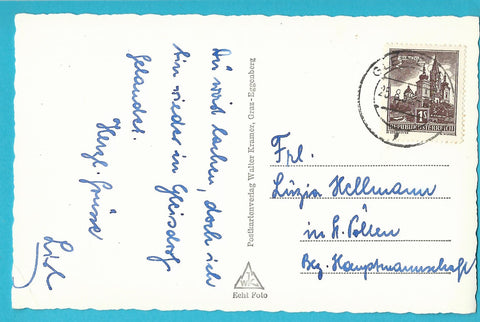 Du wirst lachen, doch ich
bin wieder in Gleisdorf
gelandet.
Herzl. Grüsse
Postkartenverlag Walter Kramer, Graz-Eggenberg
Echt Foto
REPUBLIK ÖSTERREICH
Frl.
Luzia Hellmann
in St. Pölten
Bez. Hauptmannschaft